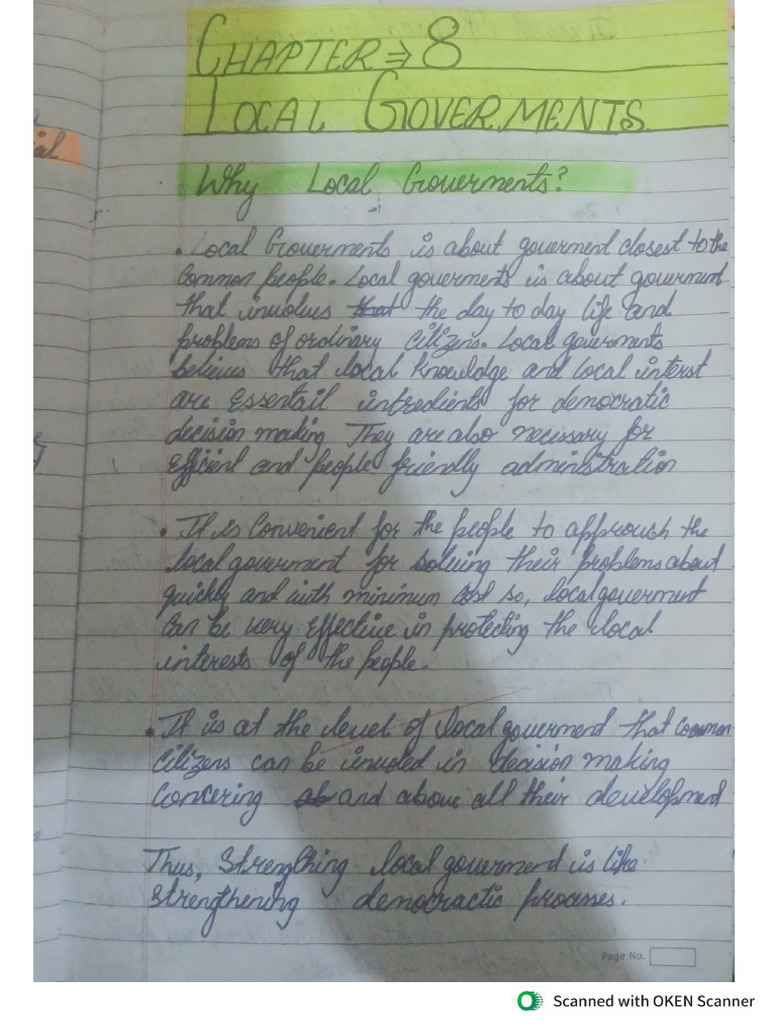 CHAPTER ⇒ 8
LOCAL GOVERMENTS.
Why Local Goverments?
• Local Goverments is about goverment closest to the
common people. Local goverments is about goverment
that involves that the day to day life and
problems of ordinary citizens. Local goverments
believes that local knowledge and local interst
are essentail intredients for democratic
decision making They are also necessary for
efficient and people friendly administration
• It is convenient for the people to approuch the
local goverment for solving their problems about
quickly and with minimum cost so, local goverment
can be very effective in protecting the local
interests of the people.
• It is at the level of local goverment that common
citizens can be involed in decision making
concering and above all their development
Thus, strengthing local goverment is like
strengthening democractic processes.
Page No.
Scanned with OKEN Scanner